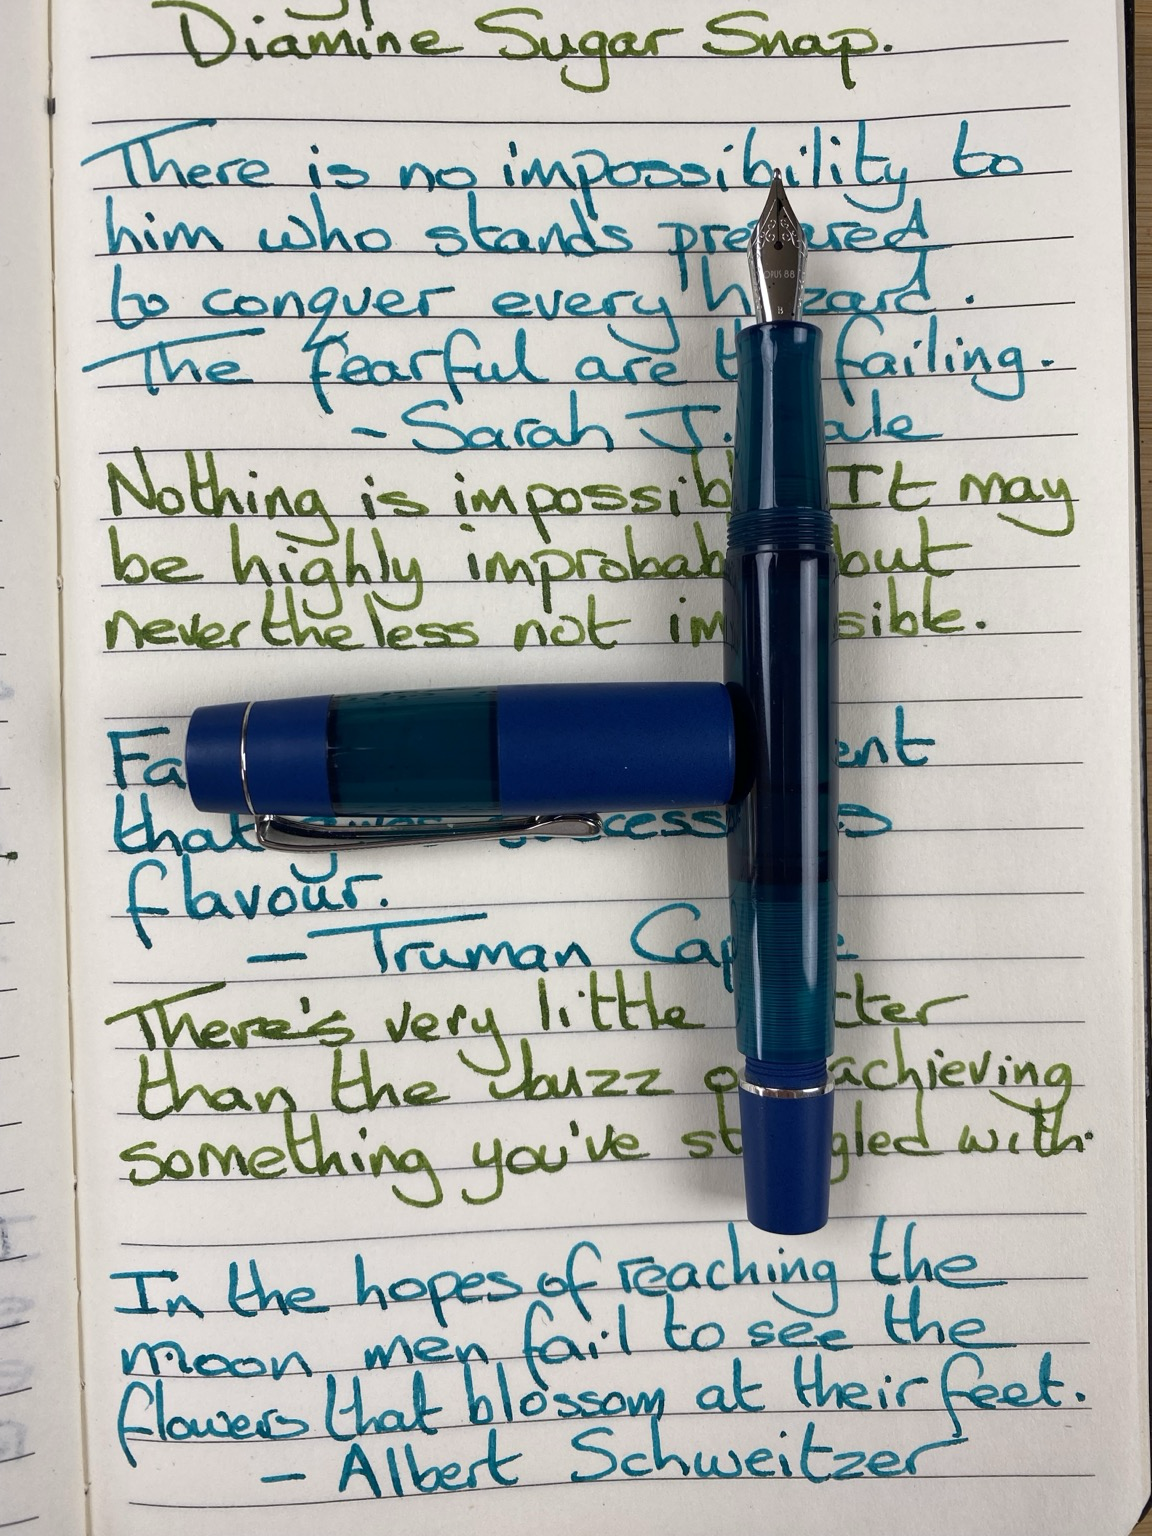 Diamine Sugar Snap.
There is no impossibility to
him who stands prepared
to conquer every hazard.
The fearful are the failing.
- Sarah J. Hale
Nothing is impossible. It may
be highly improbable but
nevertheless not impossible.
that gives success its
flavour.
- Truman Capote
There's very little better
than the buzz of achieving
something you've struggled with.
In the hopes of reaching the
moon men fail to see the
flowers that blossom at their feet.
- Albert Schweitzer
OPUS 88
B